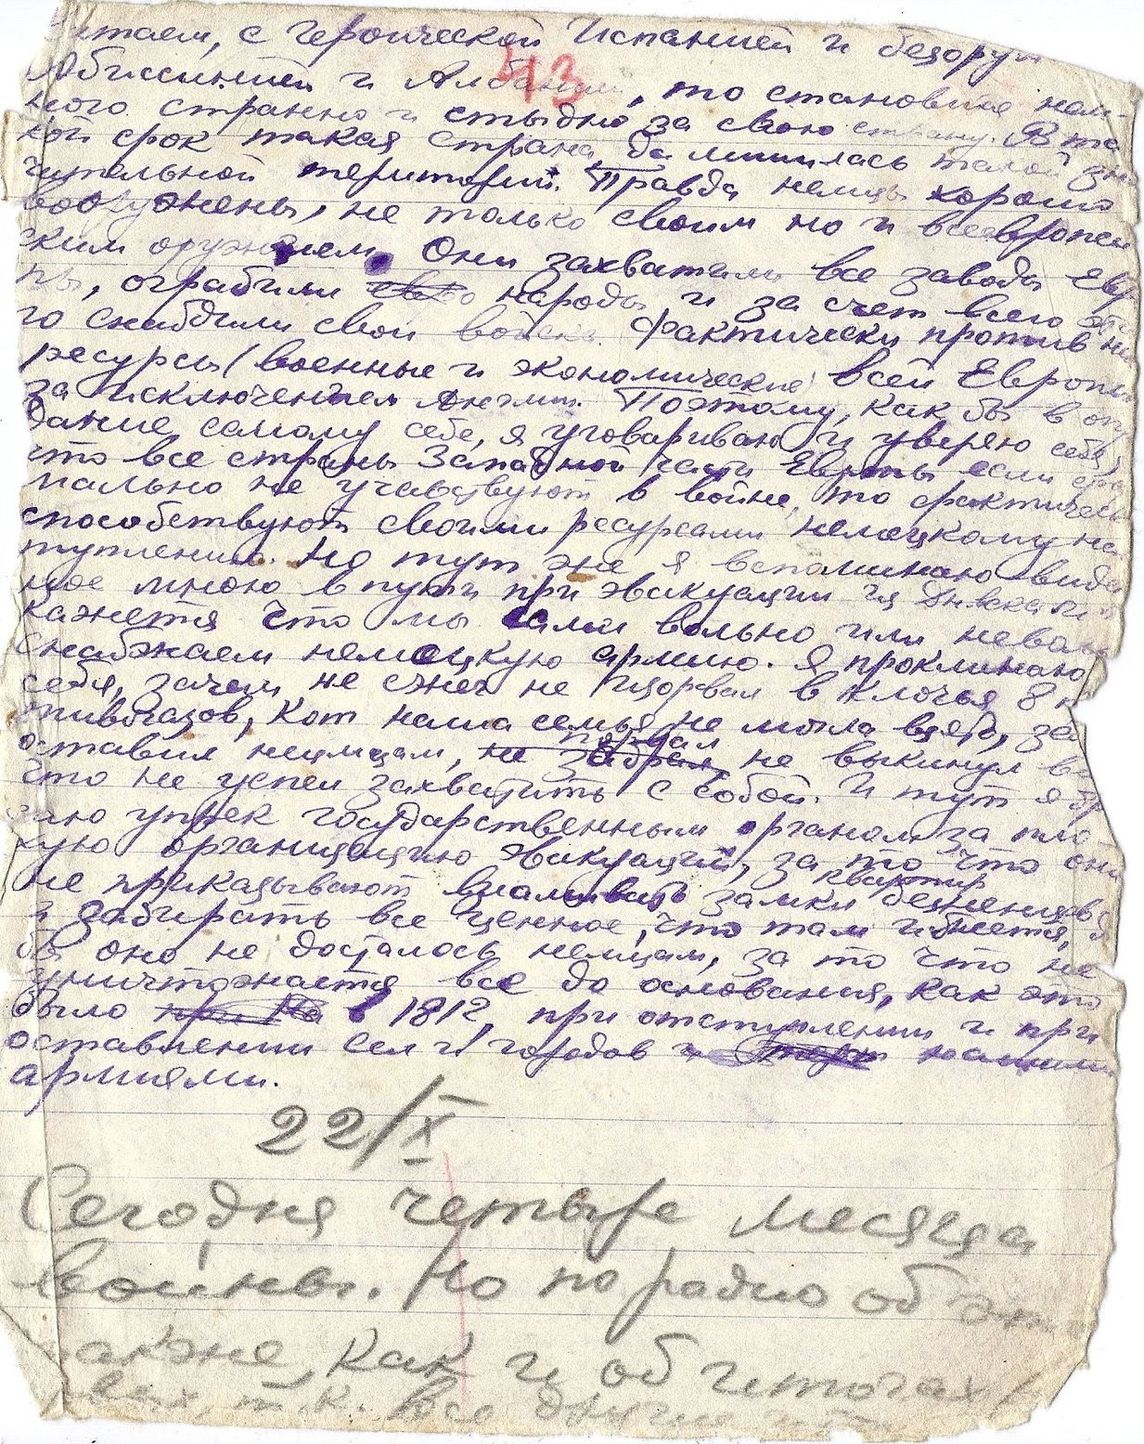 итаем, с героической Испанией и безору
313
Абиссинией и Албании, то становится нем-
ного странно и стыдно за свою страну. В та
кой срок такая страна, да лишилась такой зна
чительной территорий. Правда немцы хорошо
вооружены, не только своим но и всеевропей
ским оружием. Они захватили все заводы Евр
пы, ограбили народы и за счет всего
го снабдили свои войска. Фактически против
ресурсы (военные и экономические) всей Европы
за исключением Англии. Поэтому, как бы в
дание самому себе, я уговариваю и уверяю себя,
что все страны Западной части Европы если
мально не учавствуют в войне, то фактически
способствуют своими ресурсами немецкому на
туплению. Но тут же я вспоминаю виде
ное мною в пути при эвакуации из и
кажется что мы сами вольно или неволь
снабжаем немецкую армию. Я проклинаю
себя, зачем не сжег не изорвал в клочья 8
тивогазов, кот наша семья не могла взять, за
порвал
оставил немцам, не забрал, не выкинул в
что не успел захватить с собой. И тут я бр
саю упрек государственным органом за пло
хую организацию эвакуации, за то что они
квартир
не приказывают взламывать замки беженцев
и забирать все ценное, что там имеется,
бы оно не досталось немцам, за то что не
уничтожается все до основания, как это
было в 1812, при отступлении и при
оставлении сел и городов нашими
армиями.
22/X
Сегодня четыре месяца
войны. Но по радио об эт
также, как и об итогах
т.к. все другие